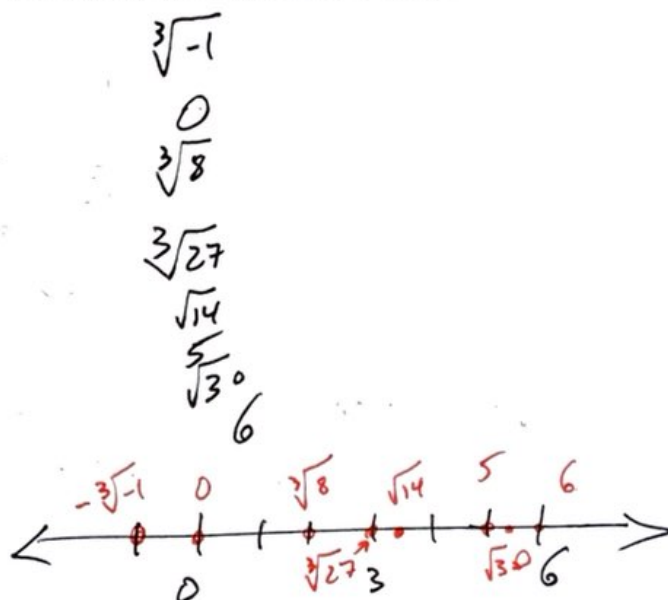 ∛-1
0
∛8
∛27
√14
5
√30
6
-∛-1 0 ∛8 √14 5 6
0 ∛27 3 √30 6